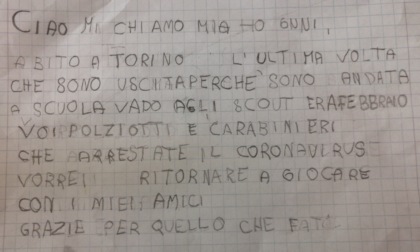 CIAO MI CHIAMO MIA HO ANNI,
ABITO A TORINO L'ULTIMA VOLTA
CHE SONO USCITAPERCHE' SONO ANDATA
A SCUOLA VADO AGLI SCOUT ERAFEBBRAIO
VOI POLZIOTTI E CARABINIERI
CHE ARRESTATE IL CORONAVERUS
VORREI RITORNARE A GIOCARE
CON I MIEI AMICI
GRAZIE PER QUELLO CHE FATE